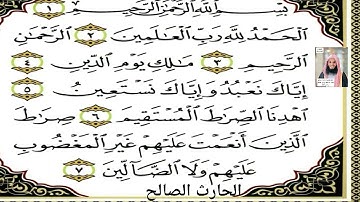 بِسْمِ اللَّهِ الرَّحْمَٰنِ الرَّحِيمِ ١
الْحَمْدُ لِلَّهِ رَبِّ الْعَالَمِينَ ٢ الرَّحْمَٰنِ
الرَّحِيمِ ٣ مَالِكِ يَوْمِ الدِّينِ ٤
إِيَّاكَ نَعْبُدُ وَإِيَّاكَ نَسْتَعِينُ ٥
اهْدِنَا الصِّرَاطَ الْمُسْتَقِيمَ ٦ صِرَاطَ
الَّذِينَ أَنْعَمْتَ عَلَيْهِمْ غَيْرِ الْمَغْضُوبِ
عَلَيْهِمْ وَلَا الضَّالِّينَ ٧
الحارث الصالح